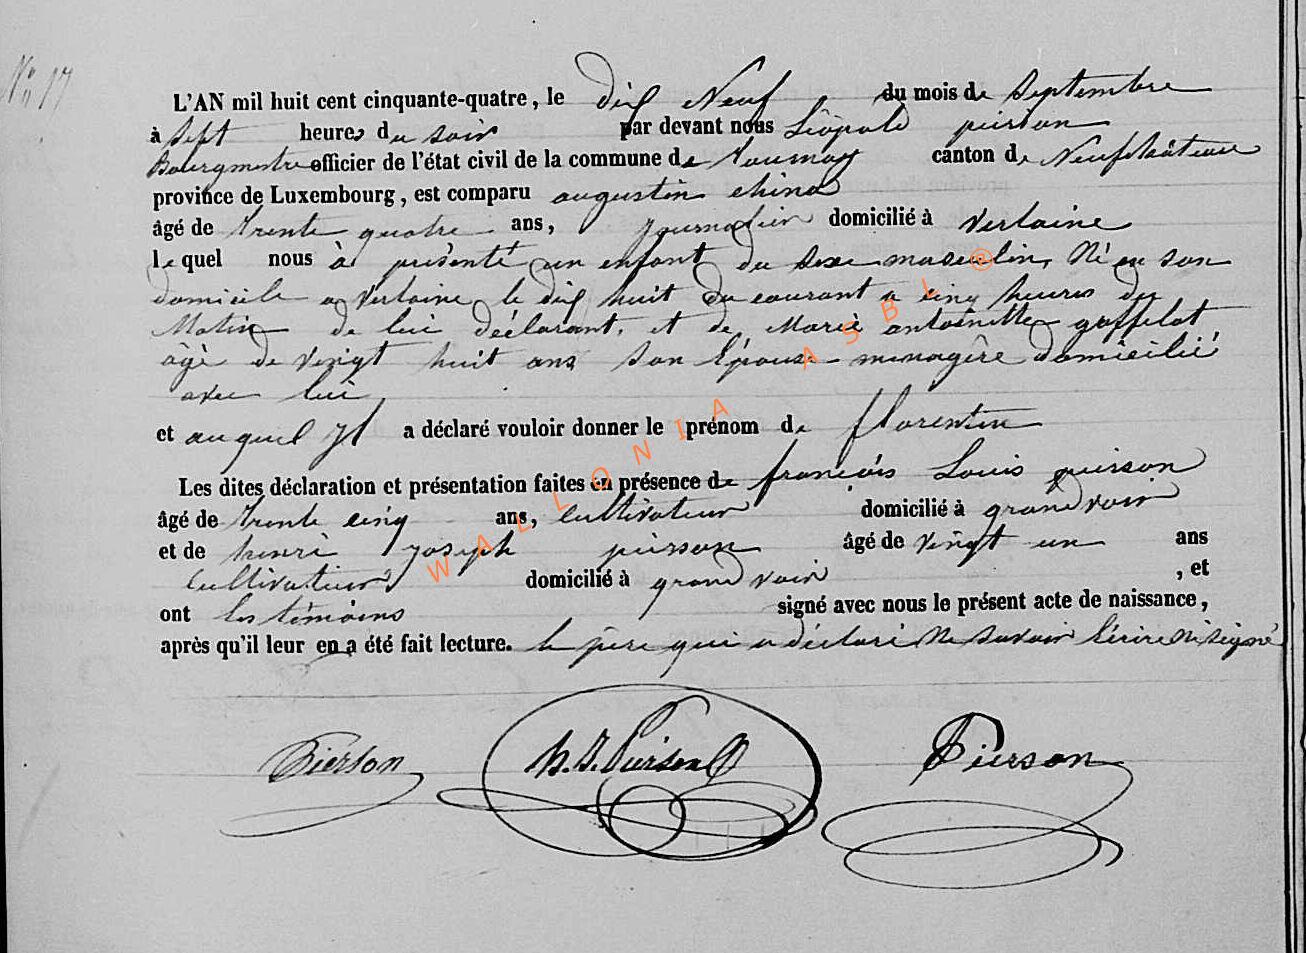 N° 17
L'AN mil huit cent cinquante-quatre, le dix Neuf du mois de Septembre
à sept heures du soir par devant nous Léopold pierson
Bourgmestre officier de l'état civil de la commune de tournay canton de Neufchâteau
province de Luxembourg, est comparu augustin china
âgé de trente quatre ans, journalier domicilié à Verlaine
lequel nous à présenté un enfant du sexe masculin, Né en son
domicile a Verlaine le dix huit du courant a cinq heures du
Matin de lui déclarant, et de Marie antoinette goffelot,
âgé de veingt huit ans son épouse menagère domicilié
avec lui
et auquel il a déclaré vouloir donner le prénom de florentin
Les dites déclaration et présentation faites en présence de françois Louis pierson
âgé de trente cinq ans, cultivateur domicilié à grandvoir
et de henri joseph pierson âgé de veingt un ans
cultivateur domicilié à grandvoir , et
ont les témoins signé avec nous le présent acte de naissance,
après qu'il leur en a été fait lecture. le père qui a déclaré ne savoir écrire ni signé
Pierson H. J. Pierson Pierson
WALLONIA ASBL ®